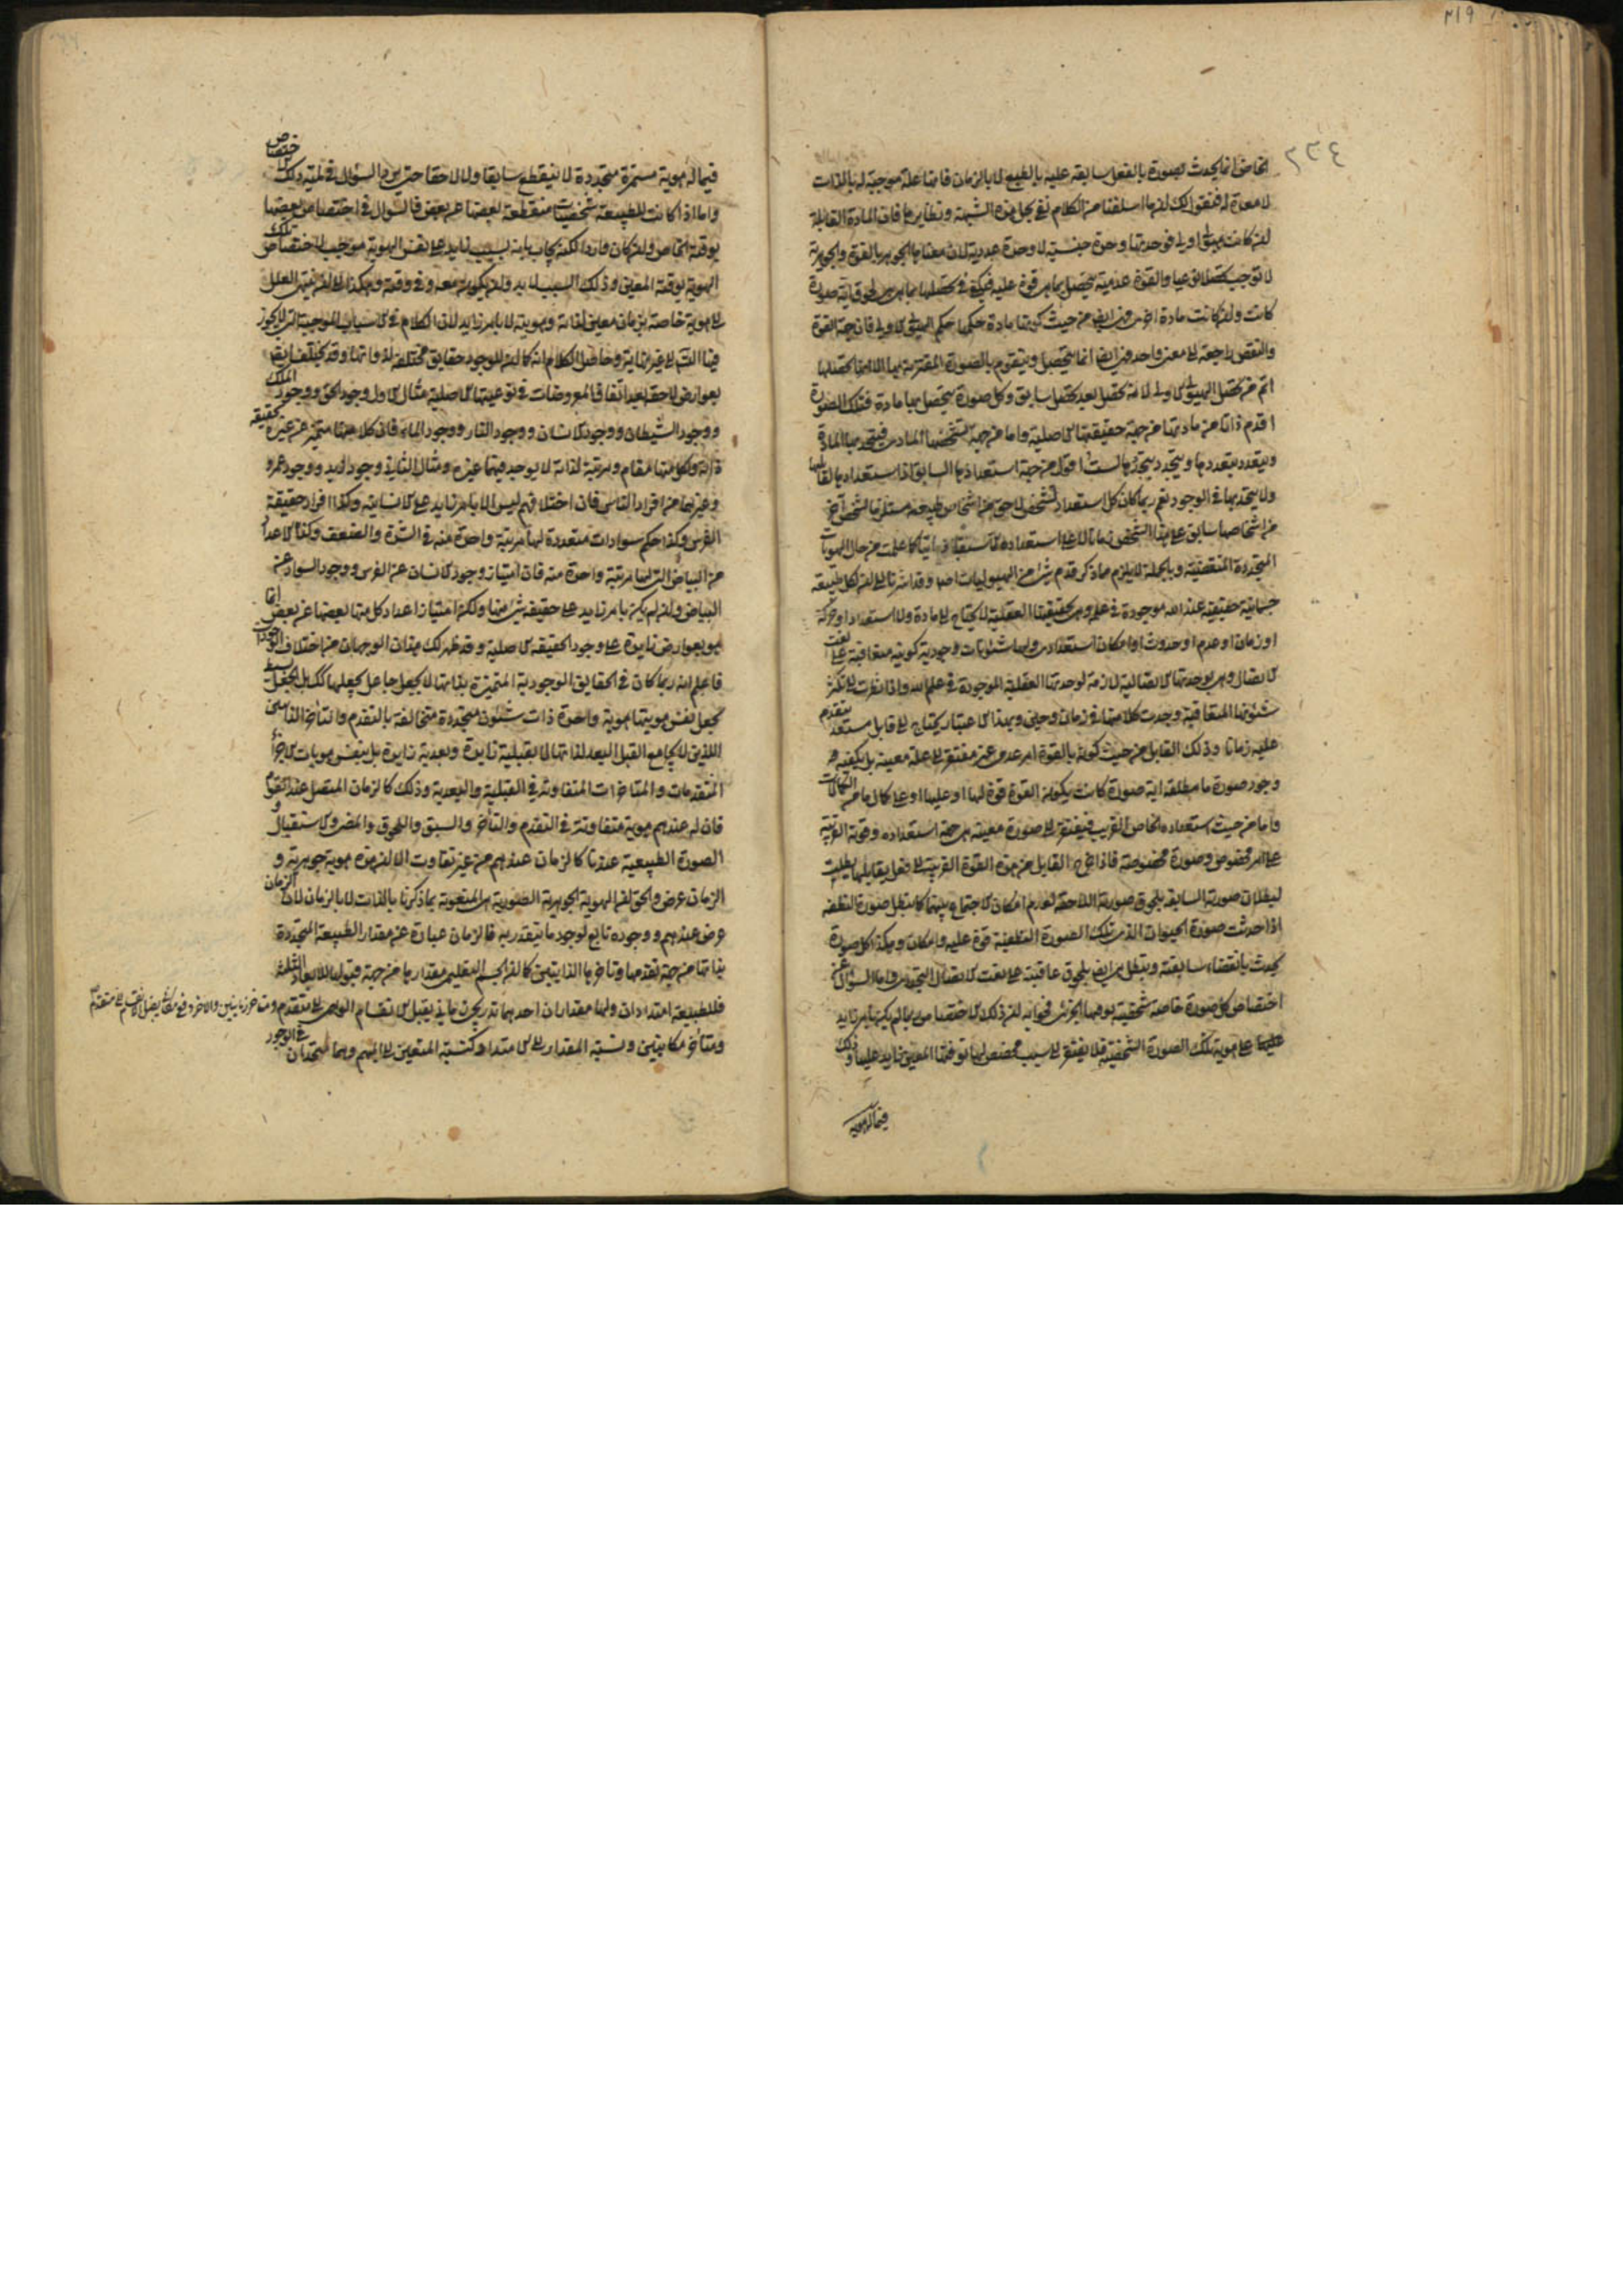 ٢١٩
٢٢٤
الخاص انما يحدث بصورة بالفعل سابقة عليه بالطبع لا بالزمان فانها علة موجبة له بالذات
لا معدة له فنقول لك ان ما اسلفنا من الكلام يفي بحل هذه الشبهة ونظايرها فان المادة القابلة
ان كانت هيولى اولى فوحدتها وحدة جنسية لا وحدة عددية لان معناها الجوهر بالقوة والجوهرية
لا توجب تحصلا نوعيا والقوة عدمية يتحصل بما هي قوة عليه فيكفي في تحصلها بما هي هي لحوق اية صورة
كانت وان كانت مادة اخرى فهي ايضا من حيث كونها مادة حكمها حكم الهيولى الاولى فان جهة القوة
والنقص راجعة الى معنى واحد فهي ايضا انما يتحصل ويتقوم بالصورة المقترنة بها الا انها تحصلها
اتم من تحصل الهيولى الاولى لانه تحصل بعد تحصل سابق وكل صورة يتحصل بها مادة فتلك الصورة
اقدم ذاتا من مادتها من جهة حقيقتها الاصلية واما من جهة تشخصها المادي فيتحد بها المادة
ويتعدد بتعددها ويتجدد بتجددها لست اقول من جهة استعدادها السابق اذ استعدادها لقابلها
ولا يتحد بها في الوجود نعم ربما كان كل استعداد لشخص لاحق من اشخاص طبيعة مستلزما لشخص آخر
من اشخاصها سابق على هذا الشخص زمانا لا على استعداده الاستقبالي
المتجددة المنقضية وبالجملة لا يلزم مما ذكر قدم شيء من الهيوليات اصلا وقد اشرنا الى ان لكل طبيعة
جسمانية حقيقة عند الله موجودة في علمه وهي بحقيقتها العقلية لا يحتاج الى مادة ولا استعداد او حركة
او زمان او عدم او حدوث او امكان استعدادي ولها شئونات وجودية كونية متعاقبة على نعت
الاتصال وهي بوحدتها الاتصالية لازمة لوحدتها العقلية الموجودة في علم الله واذا نظرت الى تكثر
شئونها المتعاقبة وجدت كلا منها في زمان وحين وبهذا الاعتبار يحتاج الى قابل مستعد يتقدم
عليه زمانا وذلك القابل من حيث كونه بالقوة امر عدمي غير مفتقر الى علة معينة بل يكفيه
وجود صورة ما مطلقة اية صورة كانت يكون القوة قوة لها او عليها او على كمال ما من الكمالات
واما من حيث استعداده الخاص القريب فيفتقر الى صورة معينة هي جهة استعداده وقوته القريبة
على امر مخصوص وصورة مخصوصة فاذا خرج القابل من هذه القوة القريبة الى فعل يقابلها بطلت
لبطلان صورته السابقة بلحوق صورته اللاحقة لعدم امكان الاجتماع بينهما كما يبطل صورة النطفة
اذا حدثت صورة الحيوان الذي تلك الصورة النطفية قوة عليه وامكان وهكذا كل صورة
يحدث بانقضاء سابقته ويبطل هي ايضا بلحوق عاقبته على نعت الاتصال التجددي واما السؤال عن
اختصاص كل صورة خاصة شخصية بوقتها الجزئي فجوابه ان ذلك الاختصاص ربما لم يكن بامر زايد
عليها على هوية تلك الصورة الشخصية فلا يفتقر الى سبب مخصص لها توقتها المعين زايد عليها وذلك
فيما له هوية
فيما له هوية مستمرة متجددة لا ينقطع سابقا ولا لاحقا حتى يرد السؤال في لمية ذلك الاختصاص
واما اذا كانت للطبيعة شخصيات منقطعة بعضها عن بعض فالسؤال في اختصاص بعضها
بوقته الخاص وان كان واردا لكنه يجاب بانه لسبب زايد على نفس الهوية موجب لاختصاص تلك
الهوية بوقته المعين وذلك السبب لا بد وان يكون معه وفي وقته وهكذا الى ان ينتهي العلل
الى هوية خاصة بزمان معين لذاته وهويته لا بامر زايد لان الكلام في الاسباب الموجبة التي لا يجوز
فيها التس الى غير نهاية وحاصل الكلام انه كما ان للوجود حقايق مختلفة لذواتها وقد يختلف ايضا
بعوارض لاحقة بعد اتفاق المعروضات في نوعيتها الاصلية مثال الاول وجود الحق ووجود الملك
ووجود الشيطان ووجود الانسان ووجود النار ووجود الماء فان كلا منها متميز عن غيره بحقيقة
ذاته ولكل منها مقام ومرتبة لذاته لا يوجد فيهما غيره ومثال الثاني وجود زيد ووجود عمرو
وغيرهما من افراد الناس فان اختلافهم ليس الا بامر زايد على الانسانية وكذا افراد حقيقة
الفرس وكذا حكم سوادات متعددة لها مرتبة واحدة منه في الشدة والضعف وكذا الاعداد
من البياض التي لها مرتبة واحدة منه فان امتياز وجود الانسان عن الفرس ووجود السواد عن
البياض وان لم يكن بامر زايد على حقيقة شيء منها ولكن امتياز اعداد كل منها بعضها عن بعض انما
هو بعوارض زايدة على وجود الحقيقة الاصلية وقد ظهر لك هذان الوجهان من اختلاف الوجودات
فاعلم انه ربما كان في الحقايق الوجودية المتميزة بذاتها لا بجعل جاعل يجعلها كك بل بالجعل البسيط
يجعل نفس هويتها هوية واحدة ذات شئون متجددة متخالفة بالتقدم والتأخر الذاتيين
اللذين لا يجامع القبل البعد لذاتها لا بقبلية زايدة وبعدية زايدة بل بنفس هويات الاجزاء
المتقدمات والمتاخرات المتفاوتة في القبلية والبعدية وذلك كالزمان المتصل عند القوم
فان له عندهم هوية متفاوتة في التقدم والتأخر والسبق واللحوق والمضي والاستقبال و
الصورة الطبيعية عندنا كالزمان عندهم من غير تفاوت الا ان هذه هوية جوهرية و
الزمان عرض والحق ان الهوية الجوهرية الصورية هي المنعوتة بما ذكرنا بالذات لا بالزمان لان الزمان
عرض عندهم ووجوده تابع لوجود ما يتقدر به فالزمان عبارة عن مقدار الطبيعة المتجددة
بذاتها من جهة تقدمها وتاخرها الذاتيين كما ان الجسم التعليمي مقدارها من جهة قبولها للابعاد الثلثة
فللطبيعة امتدادان ولها مقداران احدهما تدريجي زماني يقبل الانقسام الوهمي الى متقدم ومتاخر زمانيين والاخر دفعي مكاني يقبل الانقسام الى متقدم
ومتأخر مكانيين ونسبة المقدار الى الامتداد كنسبة المتعين الى المبهم وهما متحدان في الوجود